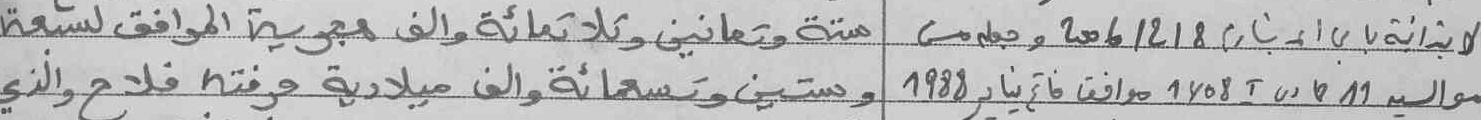 ستة وثمانين وثلاثمائة والف هجرية الموافق لسبعة
وستين وتسعمائة والف ميلادية حرفته فلاح والذي
الابتدائية 2006/12/18
مواليد 11 1408 موافق فاتح يناير 1988